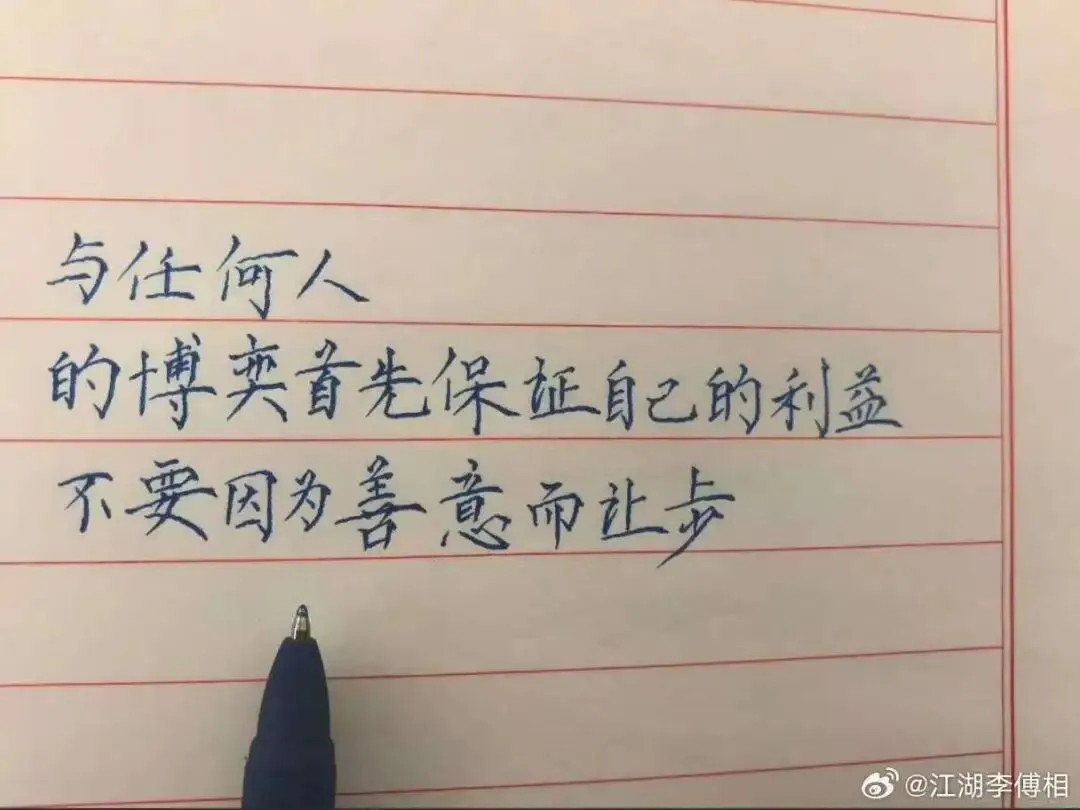 与任何人
的博奕首先保证自己的利益
不要因为善意而让步
@江湖李傅相